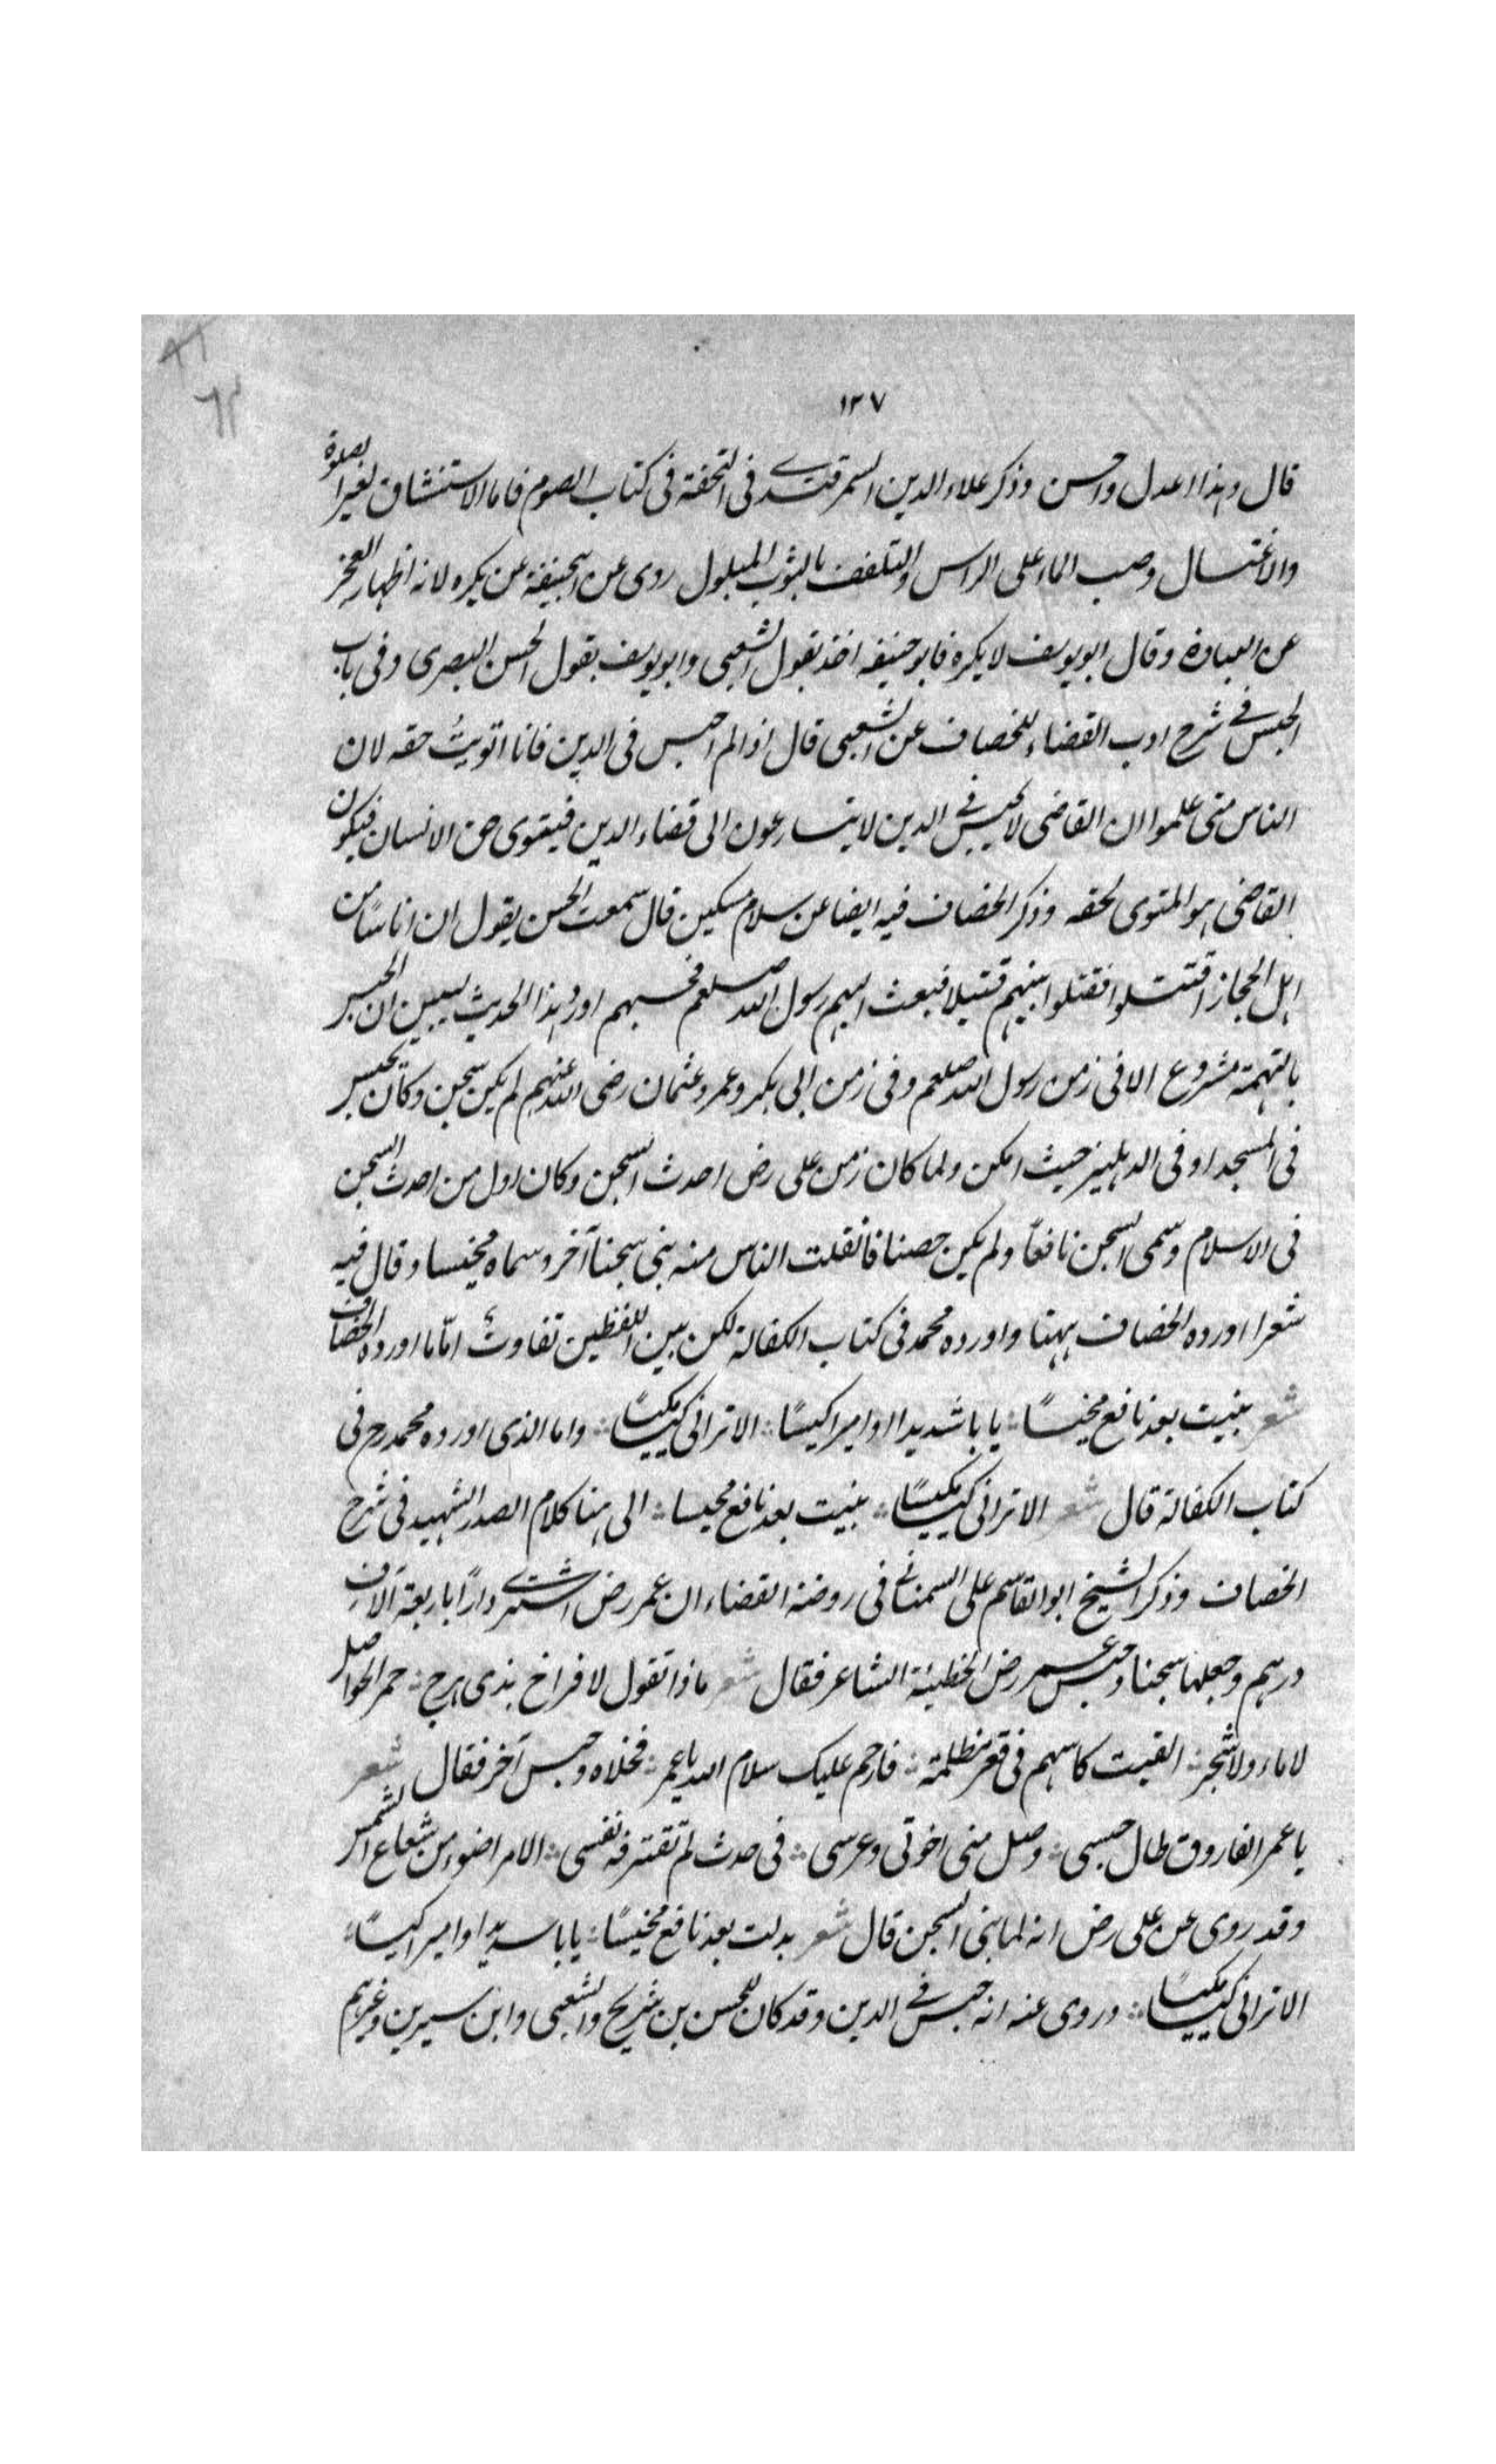 ١٢٧
قال وهذا اعدل واحسن وذكر علاء الدين السمرقندے فى التحفة فى كتاب الصوم فاما الاستنشاق لغير الصلوة
والاغتسال وصب الماء على الراس والتلفف بالثوب المبلول روى عن ابيحنيفة عن يكره لانه اظهار العجز
عن العبادة وقال ابويوسف لا يكره فابوحنيفه اخذ بقول الشعبى وابويوسف بقول الحسن البصرى وفى باب
الحبس فے شرح ادب القضاء للخصاف عن الشعبى قال اذا لم احبس فى الدين فانا اتويتُ حقه لان
الناس متى علموا ان القاضى لا يحبس فے الدين لا يتسارعون الى قضاء الدين فيتوى حق الانسان فيكون
القاضى هو المتوى لحقه وذكر الخصاف فيه ايضا عن سلام مسكين قال سمعت الحسن يقول ان اناسًا من
اهل الحجاز اقتتلوا فقتلوا بينهم قتيلا فبعث اليهم رسول الله صلعم فحبسهم اورد هذا الحديث ليبين ان الحبس
بالتهمة مشروع الا فى زمن رسول الله صلعم وفى زمن ابى بكر وعمر وعثمان رضى الله عنهم لم يكن سجن وكان يحبس
فى المسجد او فى الدهليز حيث امكن ولما كان زمن على رض احدث السجن وكان اول من احدث السجن
فى الاسلام وسمى السجن نافعاً ولم يكن حصنا فانفلت الناس منه بنى سجنا آخر وسماه مخيسا وقال فيه
شعرا اورده الخصاف ههنا واورده محمد فى كتاب الكفالة لكن بين اللفظين تفاوت امّا ما اورده الخصاف
شعر بنيت بعد نافع مخيسًا ∴ يا با شديدا اوامیرا كيسًا ∴ الا ترانى كيسًا مكيسًا ∴ واما الذى اورده محمد رح فى
كتاب الكفالة قال شعر الا ترانى كيسًا مكيسًا ∴ بنيت بعد نافع محيسا ∴ الى هنا كلام الصدر الشهيد فى شرح
الخصاف وذكر الشيخ ابوالقاسم على السمنانے فى روضة القضاء ان عمر رض اشترے دارًا باربعة آلاف
درهم وجعلها سجنا وحبس عمر رض الحطيئة الشاعر فقال شعر ماذا تقول لافراخ بذى مرج ∴ حمر الحواصل
لا ماء ولا شجر ∴ القيت كاسهم فى قعر مظلمة ∴ فارحم عليك سلام الله يا عمر ∴ فخلاه وحبس آخر فقال شعر
يا عمر الفاروق طال حبسى ∴ وصل منى اخوتى وعرسى ∴ فى حدث لم تقترفه نفسى ∴ الامر اضوء من شعاع الشمس
وقد روى عن على رض انه لما بنى السجن قال شعر بدلت بعد نافع مخيسًا ∴ يا با سديدا وامیرا كيسًا ∴
الا ترانى كيسًا مكيسًا ∴ وروى عنه انه حبس فے الدين وقد كان للحسن بن شريح والشعبى وابن سيرين وغيرهم